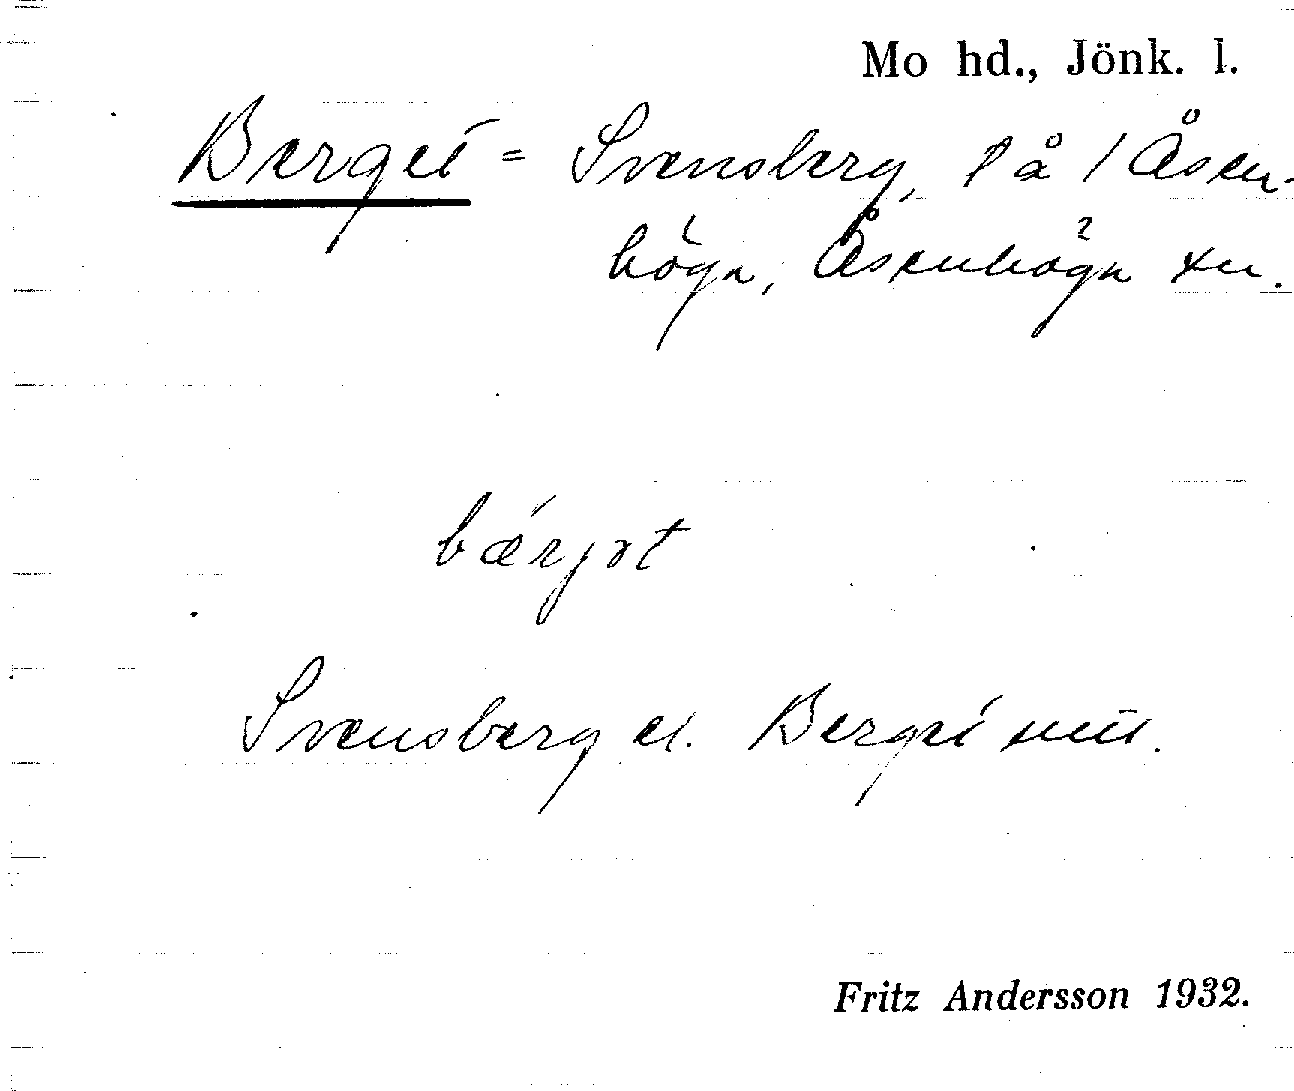 Mo hd., Jönk. l.
Berget = Svensberg, på 1 Åsen-
höga, Åsenhöga sn.
bærjət
Svensberg el. Berget
Fritz Andersson 1932.